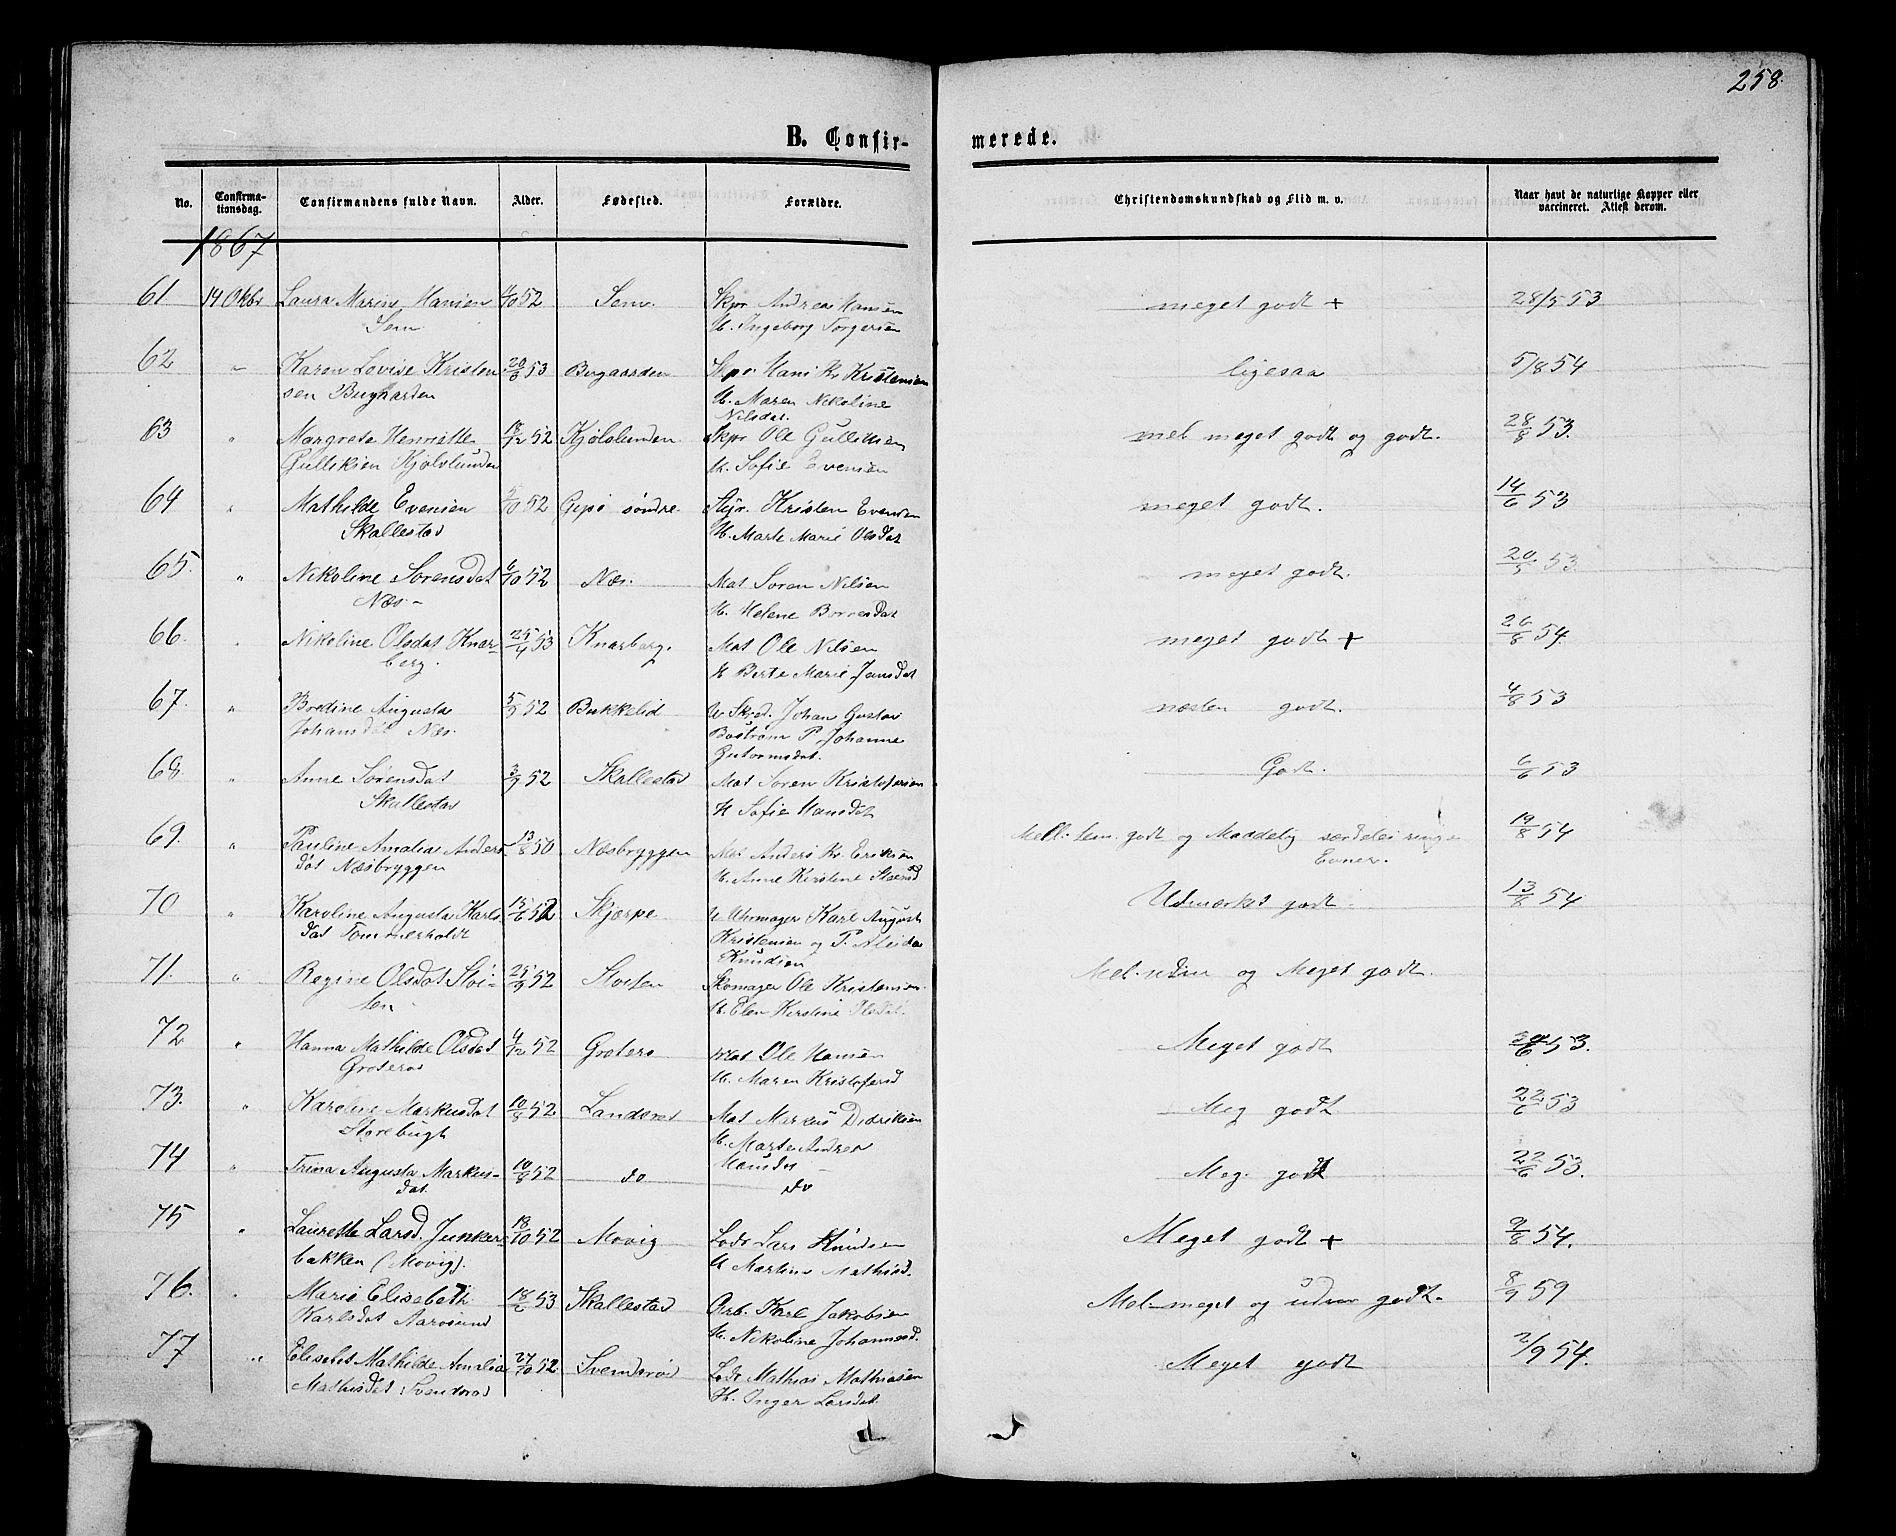 258.
B. Confirmerede.
No. Confirmationsdag. Confirmandens fulde Navn. Alder. Fødested. Forældre. Christendomskundskab og Flid m. v. Naar havt de naturlige Kopper eller vaccineret. Attest derom.
1867
61. 14 Okbr Laura Marine Hansen 4/10 52 Sem. Skpr Andreas Hansen meget godt + 28/5 53
Sem H. Ingeborg Torgersen
62 Karen Lovise Kristen 20/8 53 Bugaarden Skpr Hans Kr Kristensen ligesaa 5/8 54
sen Bugaarden H. Maren Nikoline
Nilsdat.
63 " Margrete Henriette 18/12 52 Kjølslunden Skpr Ole Gulliksen mel meget godt og godt. 28/8 53.
Gulliksen Kjølslunden H. Sofie Evensen
64 " Mathilde Evensen 5/10 52 Gipø søndre Styr. Kristen Evensen meget godt. 14/6 53
Skallestad H. Marte Marie Olsdat
65. " Nikoline Sørensdat 6/10 52 Næs. Mat Søren Nilsen meget godt. 20/5 53.
Næs - H. Helene Borresdat
66. " Nikoline Olsdat Knar- 25/4 53 Knarberg. Mat Ole Nilsen meget godt + 26/8 54.
berg. H Berte Marie Jansdat
67. " Bredine Augusta 5/9 52 Bukkelid U Skred. Johan Gustav næsten godt. 4/8 53
Johansdat Næs. Bostrøm P. Johanne
Gutormsdat.
68. " Anne Sørensdat 3/9 52 Skallestad Mat Søren Kristofersen Godt. 6/6 53
Skallestad H Sofie Hansdat
69. " Pauline Amalia Anders 13/8 50 Næsbryggen Mat Anders Kr. Eriksen Mell. tem. godt og Maadelig særdeles ringe 19/8 54
dat Næsbryggen H. Anne Kirstine Evner.
70 " Karoline Augusta Karls 15/6 52 Skjærpe U Uhrmager Karl August Udmærket godt. 13/8 54
dat Tommerholdt Kristensen og P. Aleida
Knudsen
71. " Regine Olsdat Stoi- 25/9 52 Stoiten Skomager Ole Kristensen Mel. udm og Meget godt.
ten H. Elen Kirstine
72 " Hanna Mathilde Olsdat 4/12 52 Groterø Mat Ole Hansen Meget godt 53.
Groterø H. Maren Kristofersd
73. " Karoline Markusdat 10/8 52 Landerød Mat Markus Didriksen Meg godt 22/6 53
Storebugh H. Marte Andrea
74 " Trina Augusta Markus- 10/8 52 do Hansdat - Meg. godt 22/6 53.
dat. do
75 " Laurette Larsd. Junker- 18/10 52 Movig Lods Lars Knudsen Meget godt + 9/8 54.
bakken (Movig). H Martine Mathisd.
76. . Marie Elisabeth 18/6 53 Skallestad Arb. Karl Jakobsen Mel. meget og udm godt. 8/9 59
Karlsdat Aarøsund H. Nikoline Johannesd.
77 " Elisabet Mathilde Amalia 27/10 52 Svendsrød Lods Mathias Mathiasen Meget godt 2/9 54.
Mathisdat Svendsrød H. Inger Larsdat.